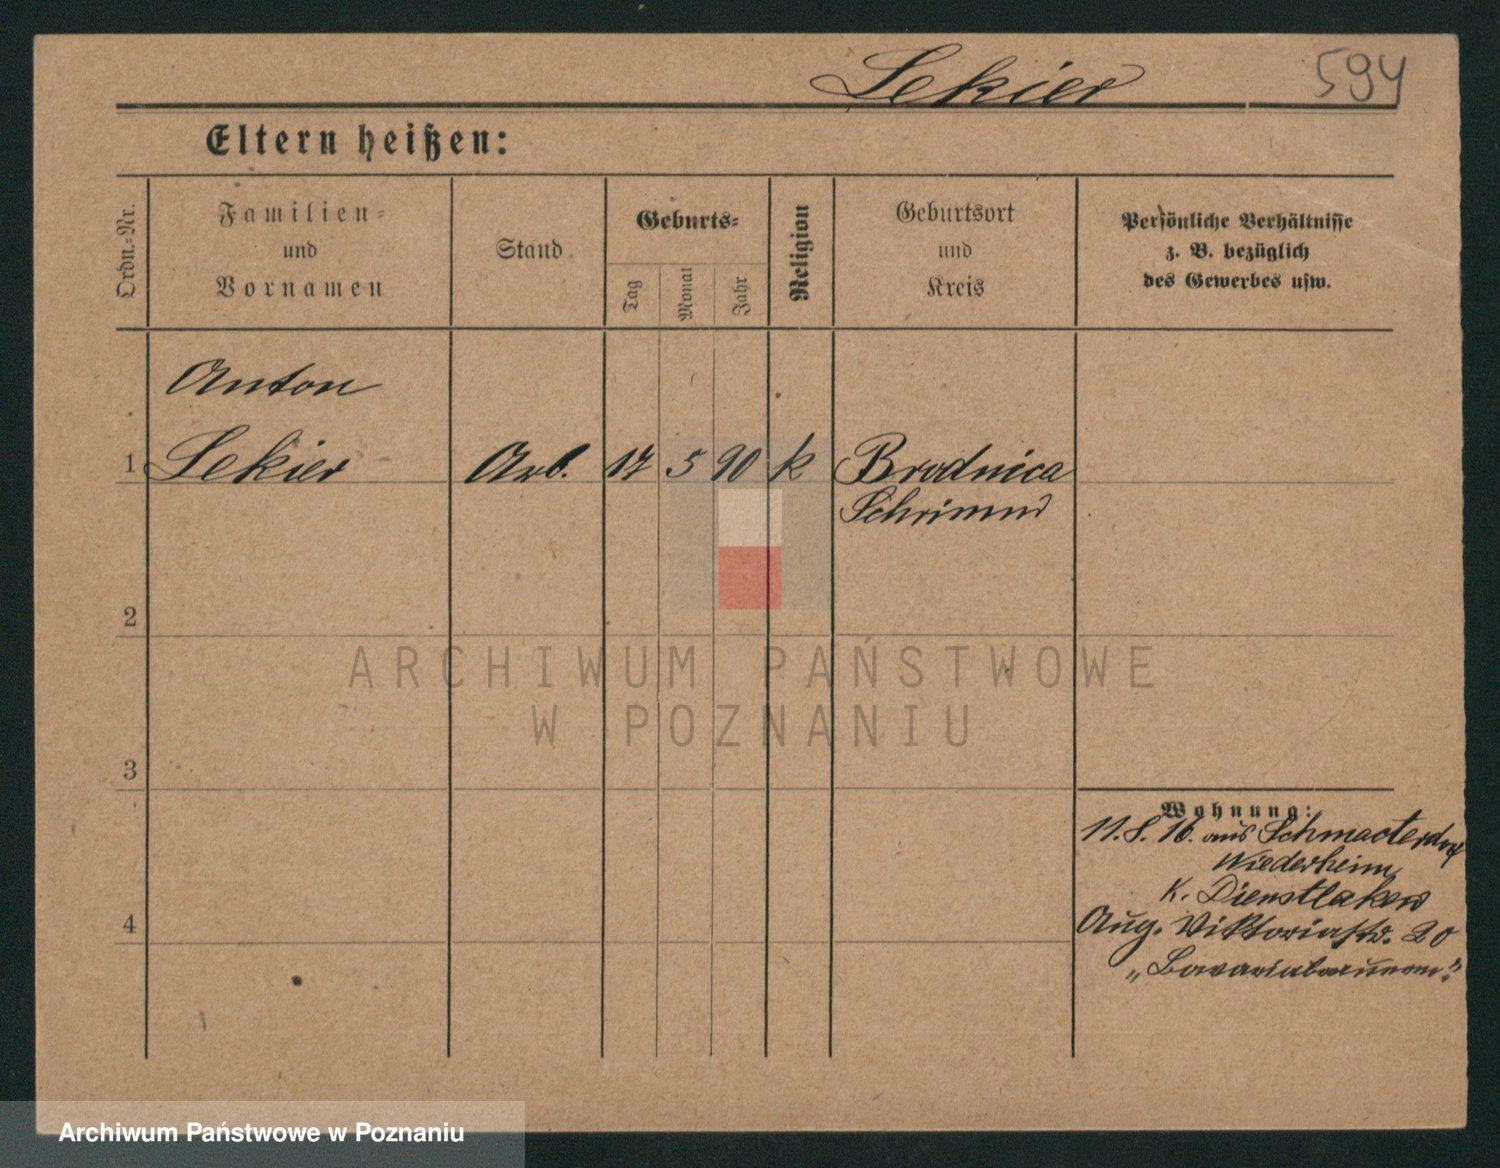 Lekier
594
Eltern heißen:
Ordn.-Nr.
Familien-
und
Vornamen
Stand
Geburts-
Tag
Monat
Jahr
Religion
Geburtsort
und
Kreis
Persönliche Verhältnisse
z. B. bezüglich
des Gewerbes usw.
Anton
1 Lekier Arb. 17 5 90 k Brodnica
Schrimm
2
ARCHIWUM PAŃSTWOWE
W POZNANIU
3
Wohnung:
11.8.16. aus
K. Dienstlaken
4
Aug. Viktoriastr. 20
Archiwum Państwowe w Poznaniu